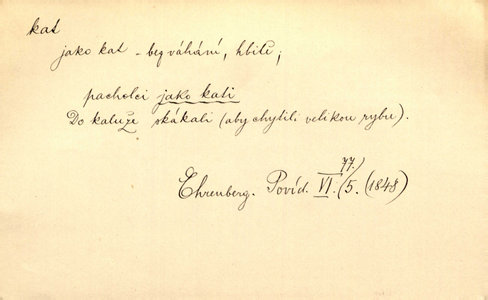 kat
jako kat – bez váhání, hbitě;
pacholci jako kati
Do kaluže skákali (aby chytili velikou rybu).
Ehrenberg. Povíd. VI. 77./5. (1848)